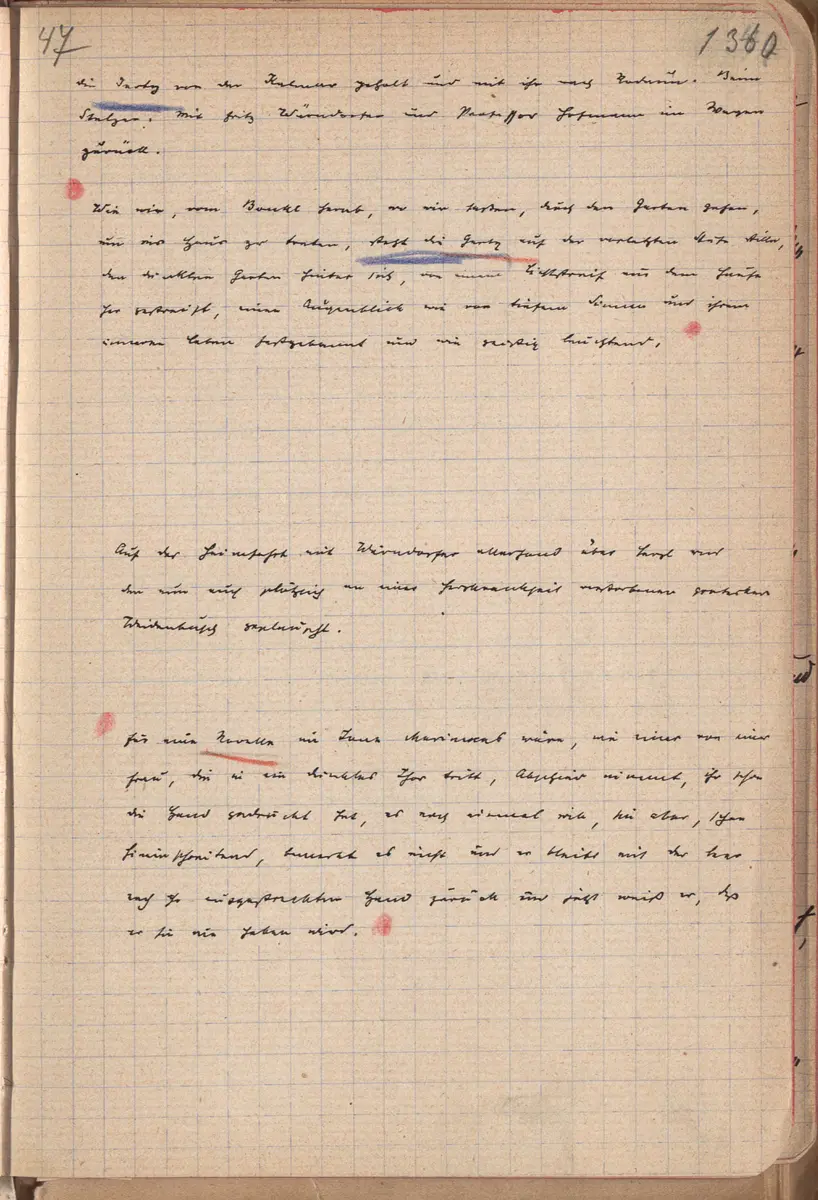 47
1360
die Gerty von der Kalmar geholt und mit ihr nach Rodaun. Beim
Stelzer. Mit Fritz Wärndorfer und Professor Hofmann im Wagen
zurück.
Wie wir, vom Bankl herab, wo wir saßen, durch den Garten gehen,
um ins Haus zu treten, steht die Gerty auf der vorletzten Stufe stille,
den dunklen Garten hinter sich, von einem Lichtstreif aus dem Hause
her gestreift, einen Augenblick wie von tiefem Sinnen und ihrem
inneren Leben festgebannt und wie geistig leuchtend.
Auf der Heimfahrt mit Wärndorfer allerhand über Herzl und
den nun auch plötzlich an einer Herzkrankheit verstorbenen
Weidenbusch geplauscht.
Für eine Novelle wäre, wie einer von einer
Frau, die in ein dunkles Thor tritt, Abschied nimmt, ihr schon
die Hand gedrückt hat, es noch einmal will, sie aber, schon
hineinschreitend, bemerkt es nicht und er bleibt mit der leer
nach ihr ausgestreckten Hand zurück und jetzt weiß er, daß
er sie nie haben wird.